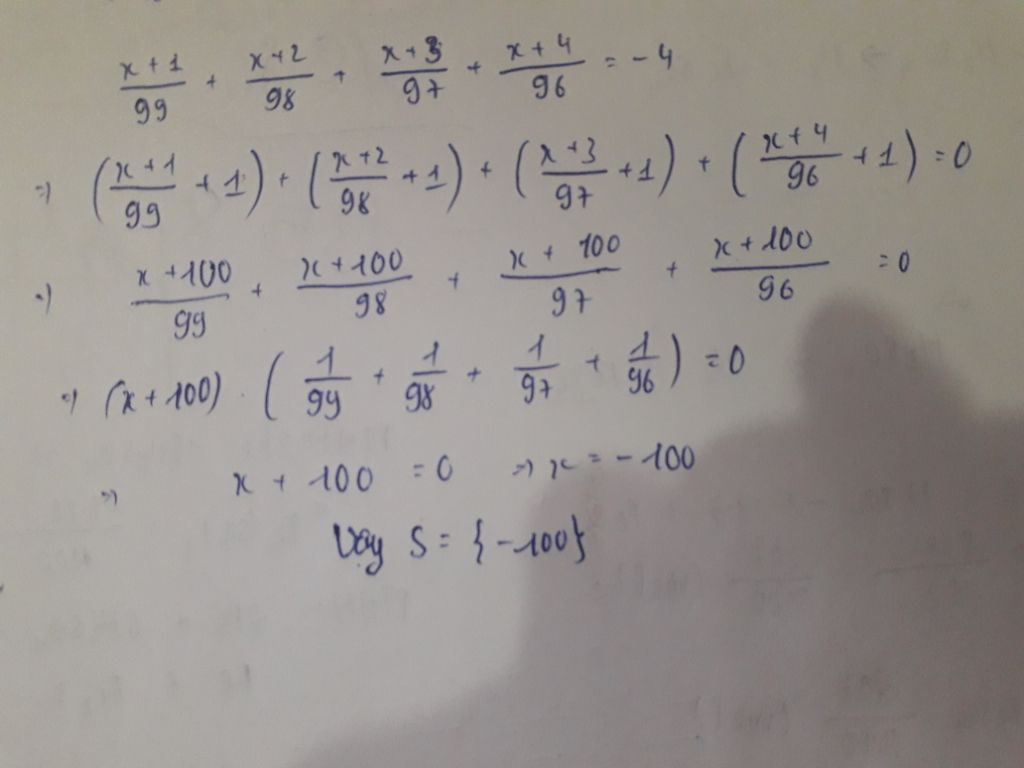 x+1/99 + x+2/98 + x+3/97 + x+4/96 = -4
=> (x+1/99 + 1) + (x+2/98 + 1) + (x+3/97 + 1) + (x+4/96 + 1) = 0
=> x+100/99 + x+100/98 + x+100/97 + x+100/96 = 0
=> (x+100) . (1/99 + 1/98 + 1/97 + 1/96) = 0
=> x + 100 = 0 => x = -100
Vậy S = {-100}